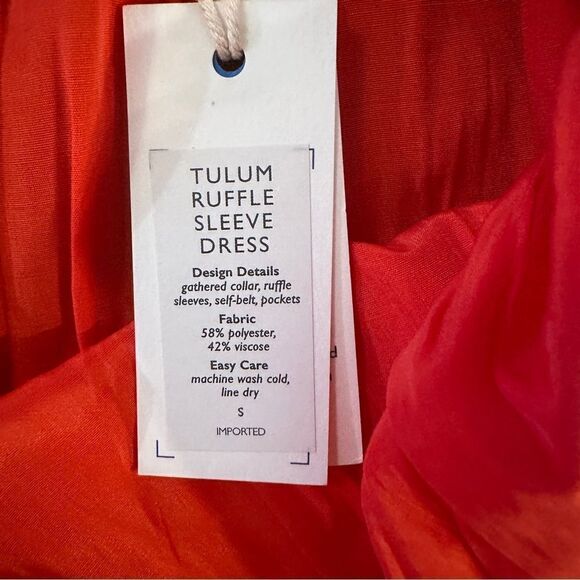 TULUM
RUFFLE
SLEEVE
DRESS
Design Details
gathered collar, ruffle
sleeves, self-belt, pockets
Fabric
58% polyester,
42% viscose
Easy Care
machine wash cold,
line dry
S
IMPORTED